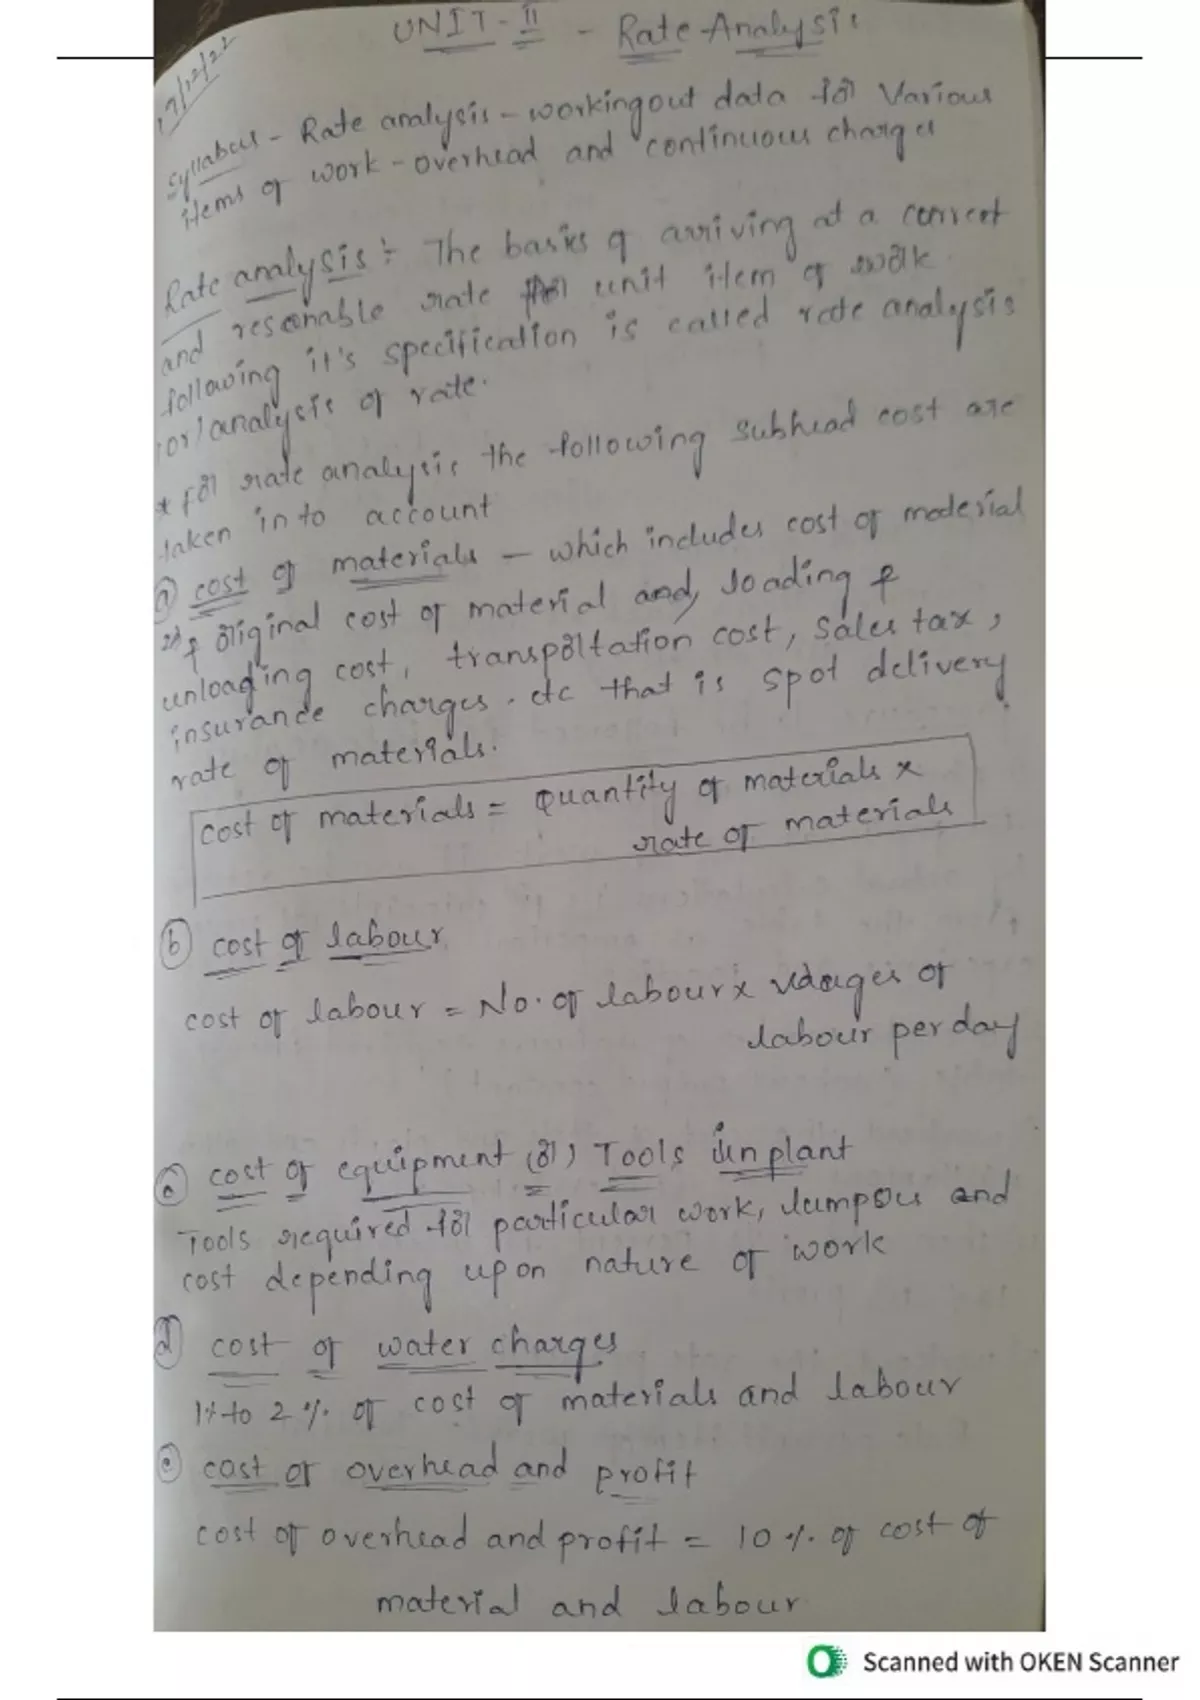 UNIT-II - Rate Analysis
7/12/22
Syllabus - Rate analysis - workingout data for Various
items of work - overhead and continuous charges
Rate analysis :- The basics of arriving at a correct
and resonable rate for unit item of work
following it's specification is called rate analysis
(or) analysis of rate.
* for rate analysis the following subhead cost are
taken in to account
(a) cost of materials - which includes cost of material
original cost of material and, loading &
unloading cost, transportation cost, sales tax,
insurance charges. etc that is spot delivery
rate of materials.
cost of materials = Quantity of materials x
rate of materials
(b) cost of labour
cost of labour = No. of labour x wages of
labour per day
(c) cost of equipment (or) Tools in plant
Tools required for particular work, lumpsu and
cost depending upon nature of work
(d) cost of water charges
1% to 2% of cost of materials and labour
(e) cost of overhead and profit
cost of overhead and profit = 10% of cost of
material and labour
Scanned with OKEN Scanner